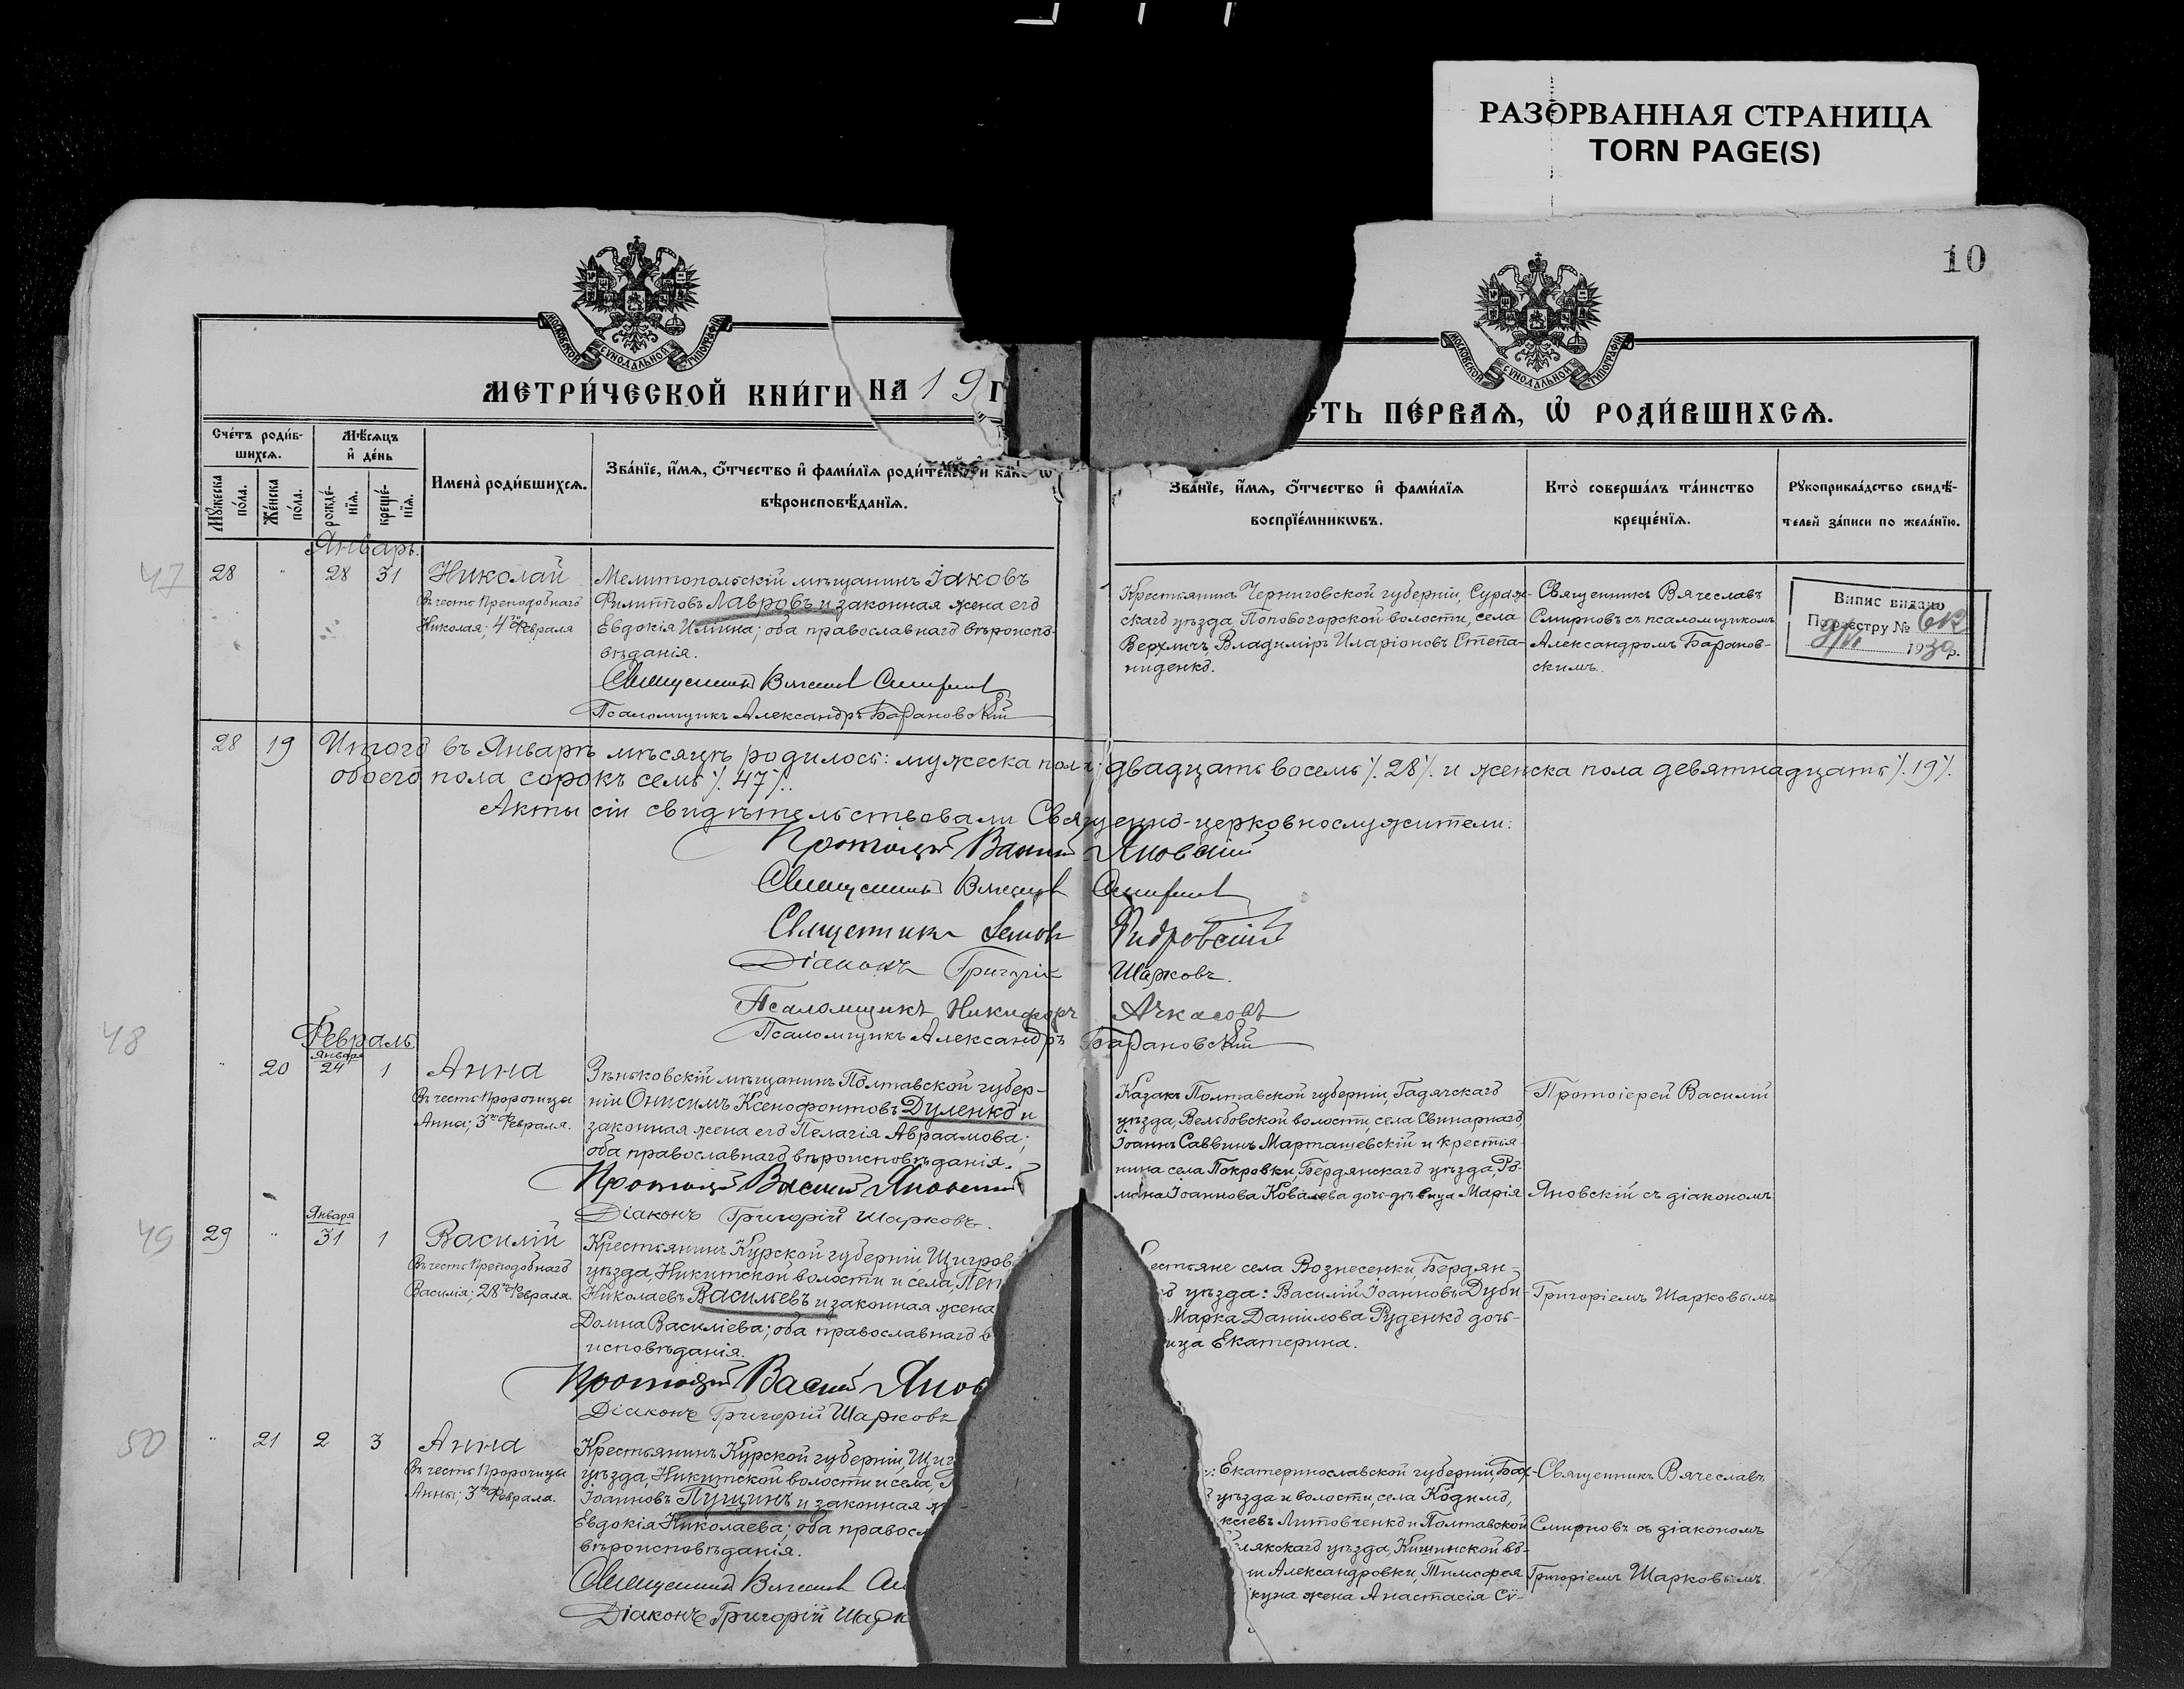 РАЗОРВАННАЯ СТРАНИЦА
TORN PAGE(S)
10
МОСКОВСКОЙ СѴНОДАЛЬНОЙ ТИПОГРАФІИ
МОСКОВСКОЙ СѴНОДАЛЬНОЙ ТИПОГРАФІИ
МЕТРИ́ЧЕСКОЙ КНИ́ГИ НА 19 Г
СТЬ ПЕ́РВАЯ, Ѡ҆ РОДИ́ВШИХСЯ.
Сче́тъ роди́в-
шихся.
Мѣ́сяцъ
и҆ де́нь
Мꙋ́жеска по́ла.
Же́нска по́ла.
рожде́-
нїя.
креще́-
нїя.
Имена̀ роди́вшихся.
Зва́нїе, и҆́мя, ѻ҆́тчество и҆ фами́лїя роди́телей, и како́гѡ
вѣроисповѣ́данїя.
Зва́нїе, и҆́мя, ѻ҆́тчество и҆ фами́лїя
воспрїе́мникѡвъ.
Кто̀ соверша́лъ та́инство
креще́нїя.
Рꙋкоприкла́дство свидѣ́-
телей за́писи по жела́нїю.
Январь.
47
28
"
28
31
Николай
Въ честь Преподобнаго
Николая; 4го Февраля
Мелитопольскій мѣщанинъ Іаковъ
Филипповъ Лавровъ и законная жена его
Евдокія Ильина; оба православнаго вѣроиспо-
вѣданія.
Священникъ Вячеславъ Смирновъ
Псаломщикъ Александръ Барановскій
Крестьянинъ Черниговской губерніи, Сураж-
скаго уѣзда, Поповогорской волости, села
Верхличъ, Владиміръ Иларіоновъ Степа-
ниденко.
Священникъ Вячеславъ
Смирновъ съ псаломщикомъ
Александромъ Баранов-
скимъ.
Випис видано
По реєстру №
1939р.
28
19
Итого въ Январѣ мѣсяцѣ родилось: мужеска пола: двадцать восемь ./. 28 ./. и женска пола девятнадцать ./. 19 ./.
обоего пола сорокъ семь ./. 47 ./.
Акты сіи свидѣтельствовали Священно-церковнослужители:
Протоіерей Василій Яновскій
Священникъ Вячеславъ Смирновъ
Священникъ
Діаконъ Григорій Шарковъ.
Псаломщикъ Никифоръ Ачкасовъ
Псаломщикъ Александръ Барановскій
Февраль
48
"
20
Января
24
1
Анна
Въ честь Пророчицы
Анна; 3го Февраля.
Зѣньковскій мѣщанинъ Полтавской губер-
ніи Онисимъ Ксенофонтовъ Дуленко и
законная жена его Пелагія Авраамова;
оба православнаго вѣроисповѣданія.
Протоіерей Василій Яновскій
Діаконъ Григорій Шарковъ.
Казакъ Полтавской губерніи, Гадячскаго
уѣзда, Вельбовской волости, села Свинарнаго,
Іоаннъ Саввинъ Марташевскій и крестья-
нина села Покровки, Бердянскаго уѣзда, Ро-
мана Іоаннова Ковалева дочь-дѣвица Марія
Протоіерей Василій
Яновскій съ діакономъ
49
29
"
Января
31
1
Василій
Въ честь Преподобнаго
Василія; 28го Февраля.
Крестьянинъ Курской губерніи, Щигров
уѣзда, Никитской волости и села,
Николаевъ Васильевъ и законная жена
Домна Василіева; оба православнаго в
исповѣданія.
Протоіерей Василій Янов
Діаконъ Григорій Шарковъ
естьяне села Вознесенки, Бердян-
о уѣзда: Василій Іоанновъ Дуби-
Марка Даніилова Руденко дочь-
ица Екатерина.
Григоріемъ Шарковымъ
50
"
21
2
3
Анна
Въ честь Пророчицы
Анны; 3го Февраля.
Крестьянинъ Курской губерніи, Щиг
уѣзда, Никитской волости и села,
Іоанновъ Пущинъ и законная ж
Евдокія Николаева; оба правосл
вѣроисповѣданія.
Священникъ Вячеславъ См
Діаконъ Григорій Шарк
: Екатеринославской губерніи, Бах-
уѣзда и волости, села Кодимо,
ксіевъ Литовченко и Полтавской
лякскаго уѣзда, Кишинской во-
и Александровки, Тимофея
куна жена Анастасія Сѵ-
Священникъ Вячеславъ
Смирновъ съ діакономъ
Григоріемъ Шарковымъ.